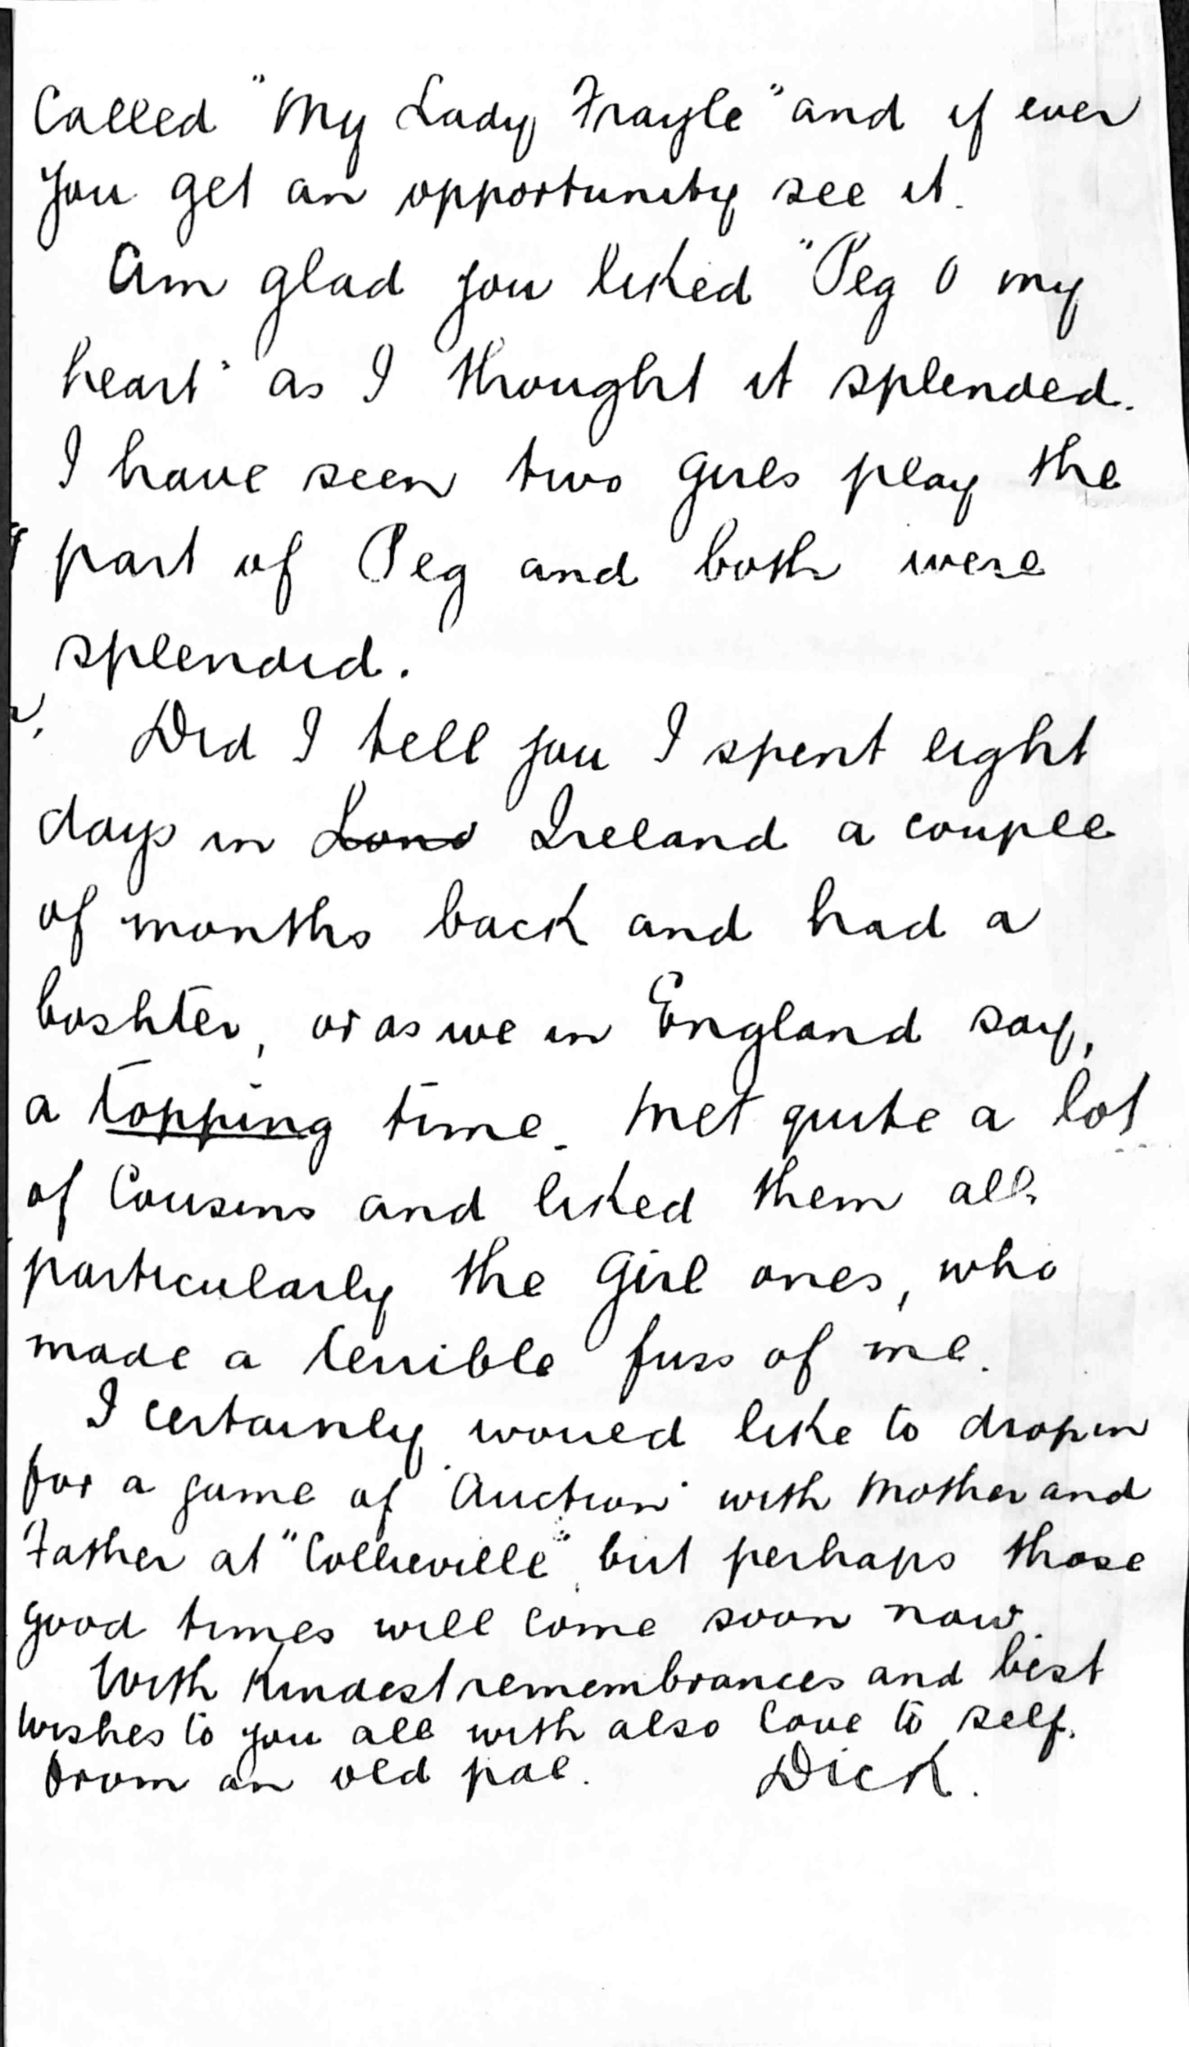 Called "My Lady Frayle" and if ever
you get an opportunity see it.
Am glad you liked "Peg O my
heart" as I thought it splended.
I have seen two girls play the
part of Peg and both were
splendid.
Did I tell you I spent eight
days in Lond Ireland a couple
of months back and had a
boshter, or as we in England say,
a topping time. Met quite a lot
of Cousins and liked them all
particularly the Girl ones, who
made a terrible fuss of me.
I certainly would like to drop in
for a game of "Auction" with Mother and
Father at "Collieville" but perhaps those
good times will come soon now.
With Kindest remembrances and best
wishes to you all with also love to self.
From an old pal. Dick.